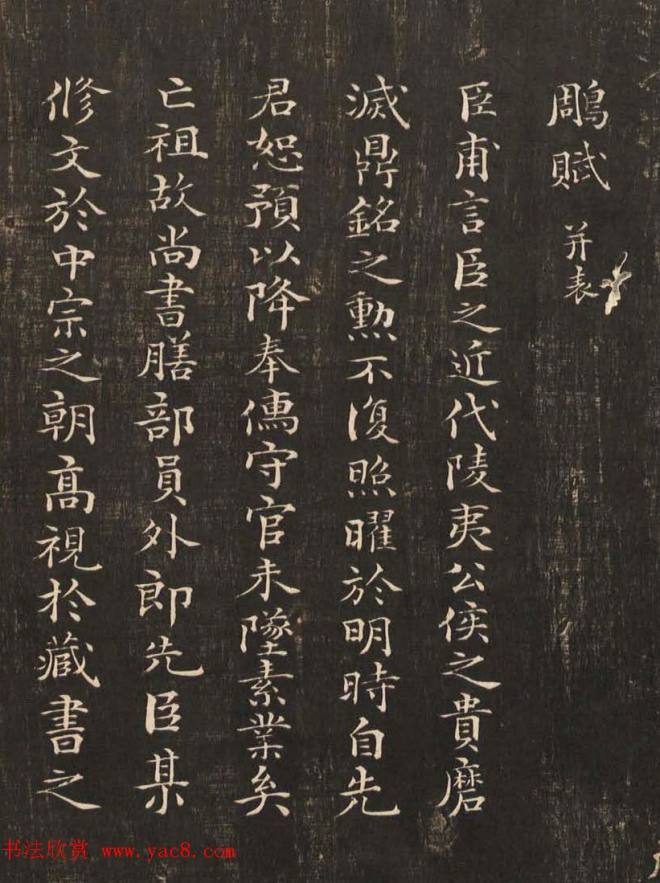 鵰賦 并表
臣甫言臣之近代陵夷公侯之貴磨
滅鼎銘之勳不復照曜於明時自先
君恕預以降奉儒守官未墜素業矣
亡祖故尚書膳部員外郎先臣某
修文於中宗之朝高視於藏書之
书法欣赏 www.yac8.com